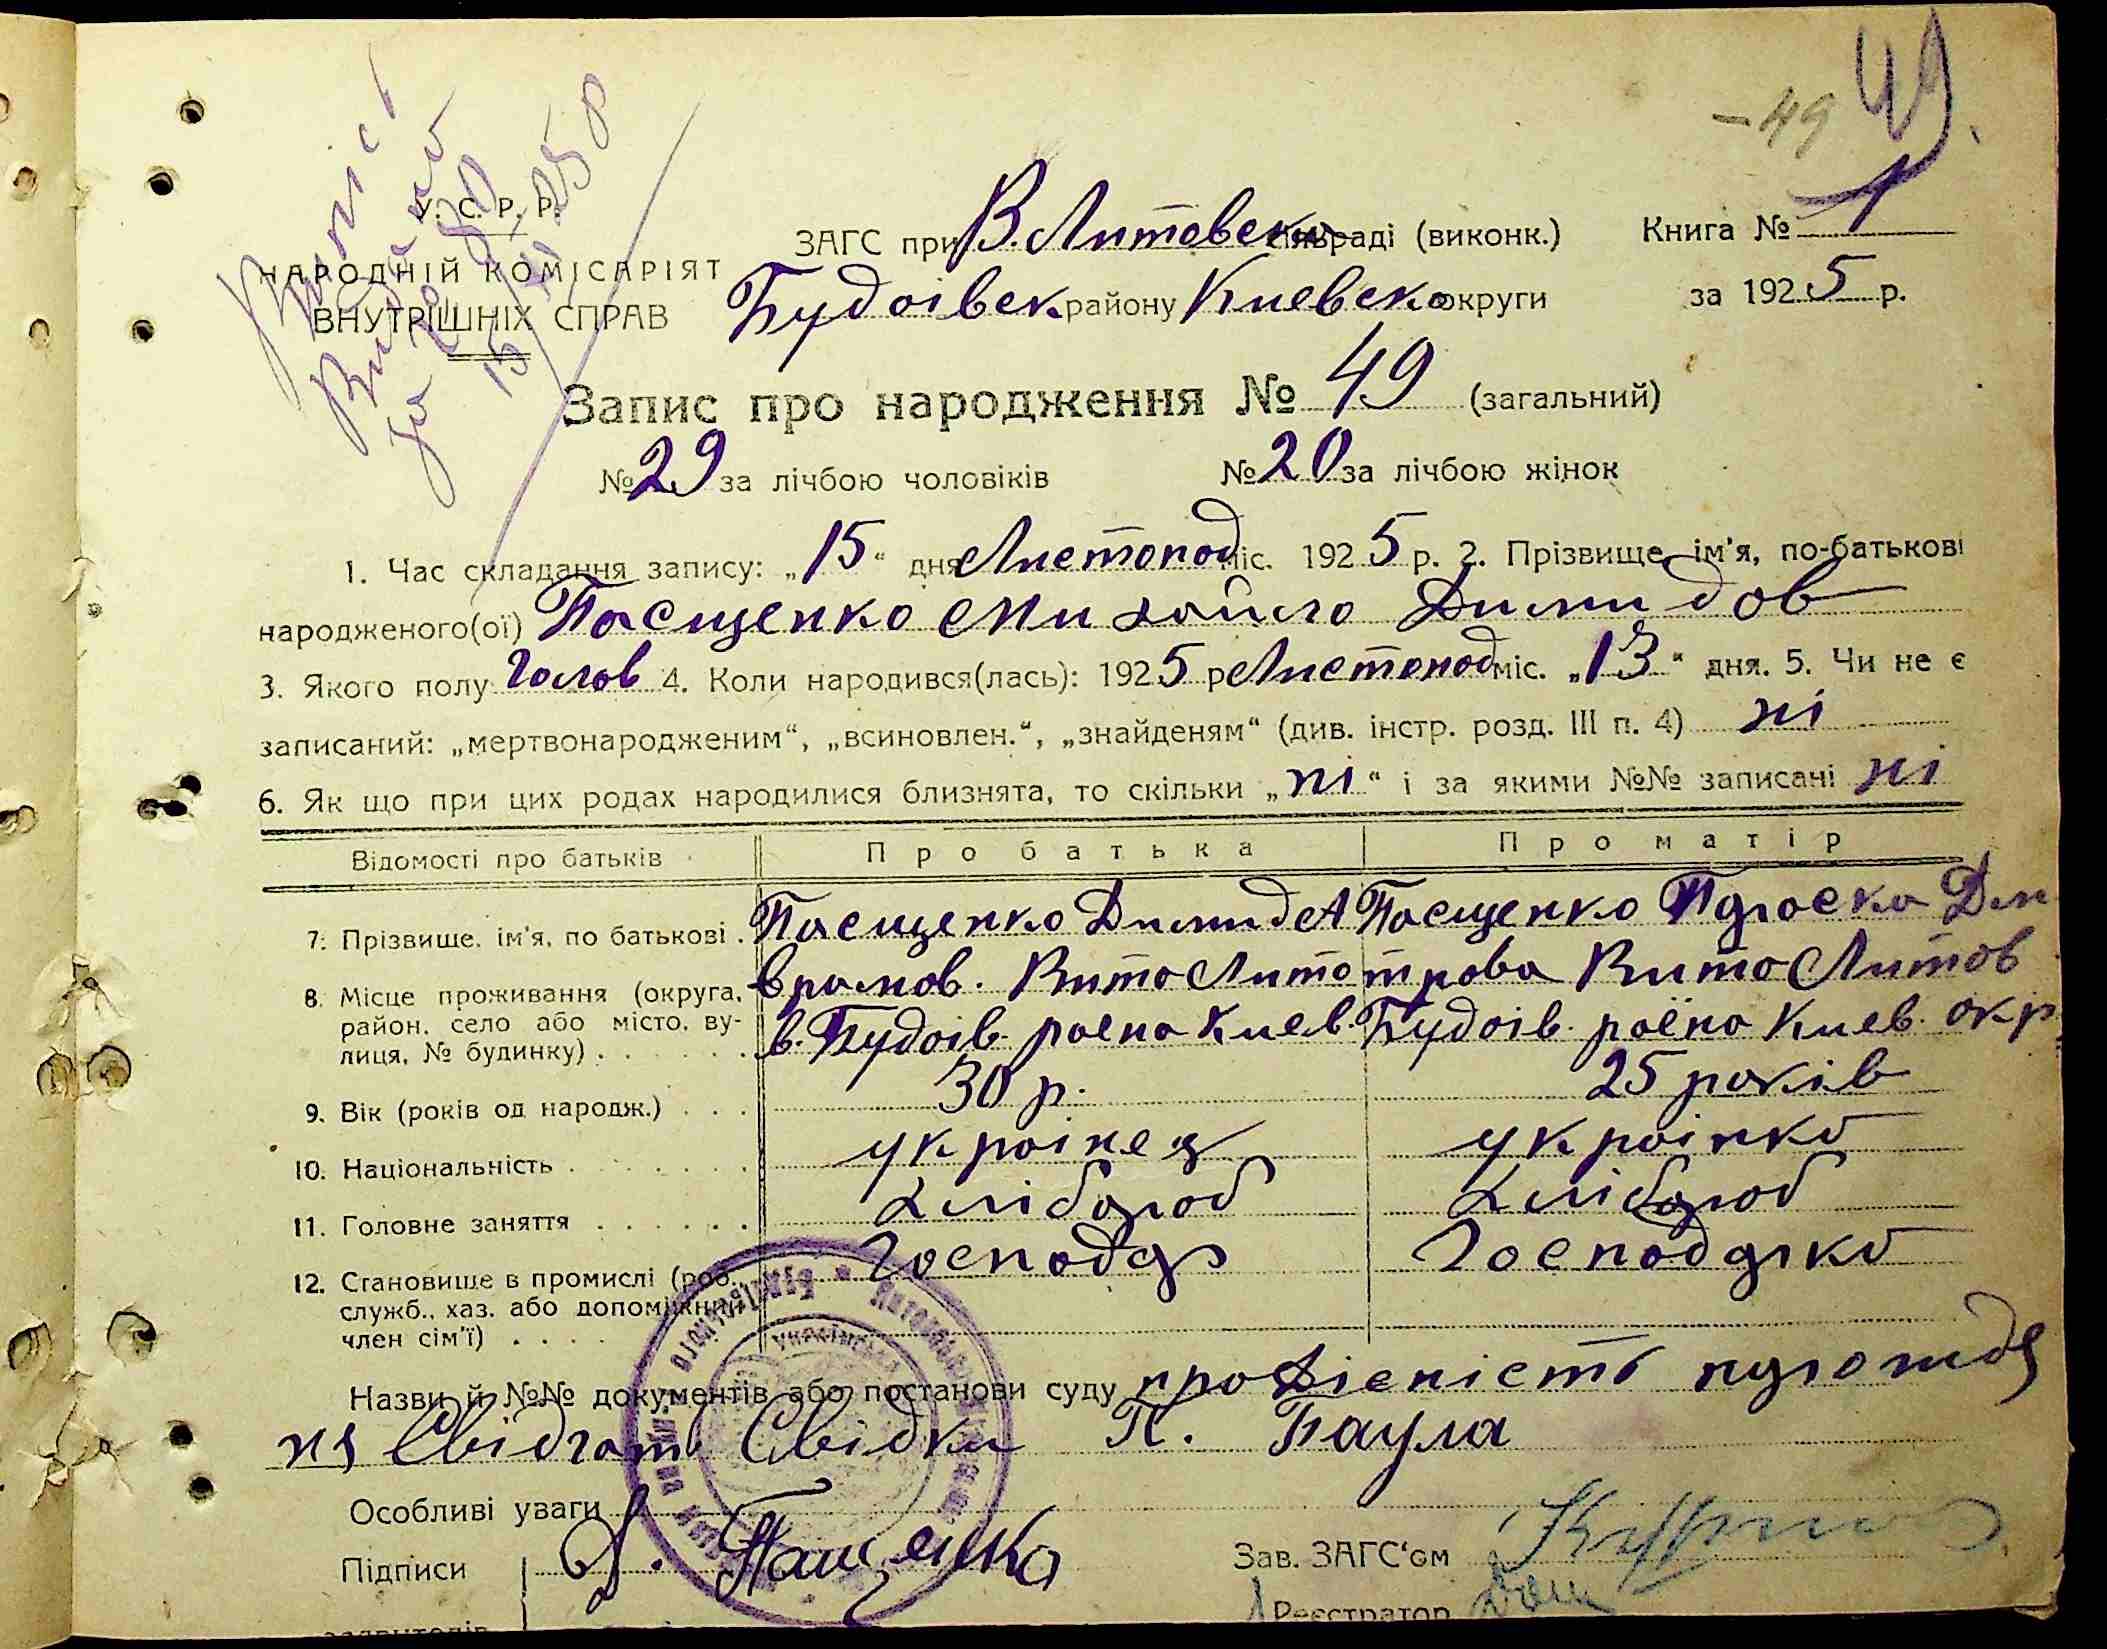 - 49 49.
У. С. Р. Р.
НАРОДНІЙ КОМІСАРІЯТ
ВНУТРІШНІХ СПРАВ
15/XI 25 р
ЗАГС при В. Литовск раді (виконк.) Книга № 1
Будоівск району Киевско округи за 1925 р.
Запис про народження № 49 (загальний)
№ 29 за лічбою чоловіків № 20 за лічбою жінок
1. Час складання запису: „15“ дня Листопод міс. 1925 р. 2. Прізвище, ім'я, по-батькові
народженого(ої) Пасщенко Михайло Димидов
3. Якого полу Голов 4. Коли народився(лась): 1925 р Листопод міс. „13“ дня. 5. Чи не є
записаний: „мертвонародженим“, „всиновлен.“, „знайденям“ (див. інстр. розд. III п. 4) ні
6. Як що при цих родах народилися близнята, то скільки „ні“ і за якими №№ записані ні
Відомості про батьків Про батька Про матір
7. Прізвище, ім'я, по батькові . Пасщенко Димид А Пасщенко Дм
врамов. Вито Лито трова Вито Литов
8. Місце проживання (округа, район, село або місто, вулиця, № будинку) . в. Будоів. раёна Киев. Будоів. раёна Киев. окр
9. Вік (років од народж.) . . . 30 р. 25 років
10. Національність . украінец украінка
11. Головне заняття . хлібороб хлібороб
12. Становище в промислі (роб., служб., хаз. або допоміжний член сім'ї) . . . . Господар Господарка
Назви й №№ документів або постанови суду
Свідки П. Баула
Особливі уваги
Підписи Д. Пащенко Зав. ЗАГС'ом
Реєстратор